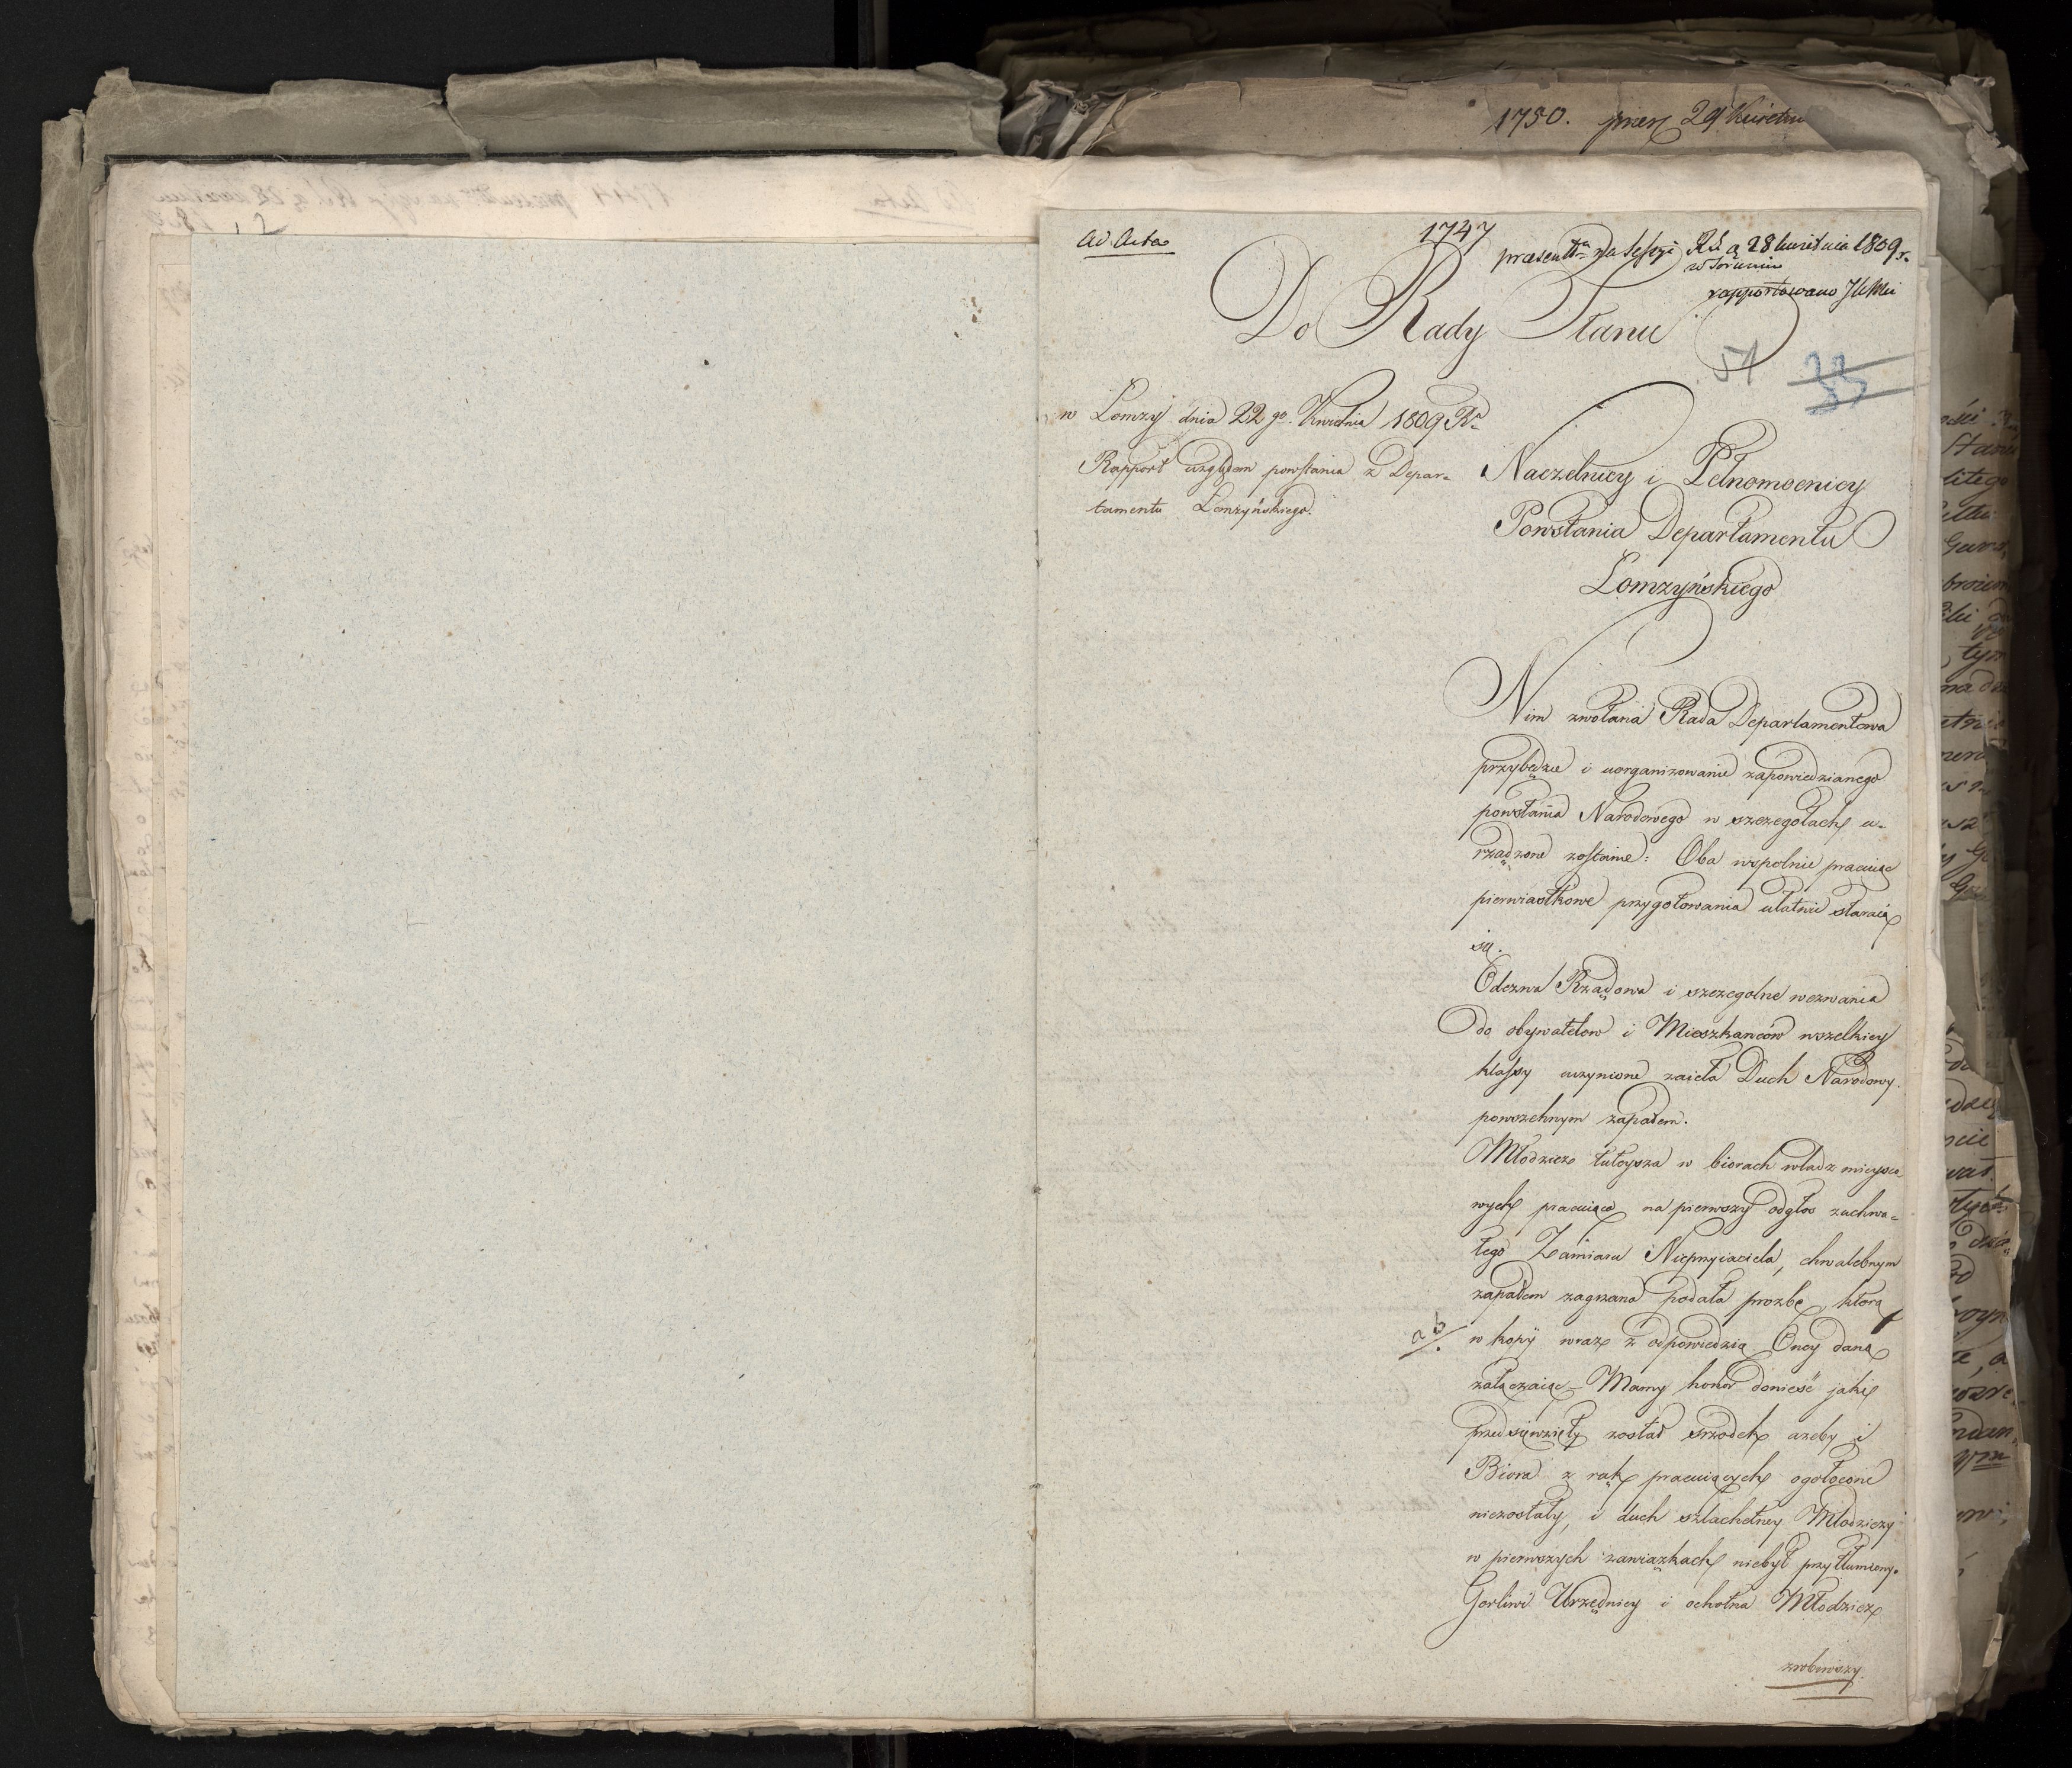 1750. przez 29 Kwietnia
Ad Acta
1747
praesentt. na sessyi RS. d. 28 kwietnia 1809 r.
w Toruniu
rapportowano
Do Rady Stanu
51
w Łomży dnia 22go. Kwietnia 1809 Ra
Rapport względem powstania z Depar-
tamentu Łomżyńskiego.
Naczelnicy i Pełnomocnicy
Powstania Departamentu
Łomżyńskiego
Nim zwołana Rada Departamentowa
przybędzie i uorganizowanie zapowiedzianego
powstania Narodowego w szczegołach u-
rządzone zostanie: Oba wspolnie pracuiąc
pierwiastkowe przygotowania ułatwić staraią
się.
Odezwa Rządowa i szczegolne wezwania
do obywatelow i Mieszkanców wszelkiey
klassy uczynione zaięła Duch Narodowy
powszechnym zapałem.
Młodzież tuteysza w biorach władz mieysco
wych pracuiąca na pierwszy odgłos zuchwa-
łego Zamiaru Nieprzyiaciela, chwalebnym
zapałem zagrzana podała prozbę, ktorą
a b w kopij wraz z odpowiedzią Oney daną
załączaiąc - Mamy honor donieść jaki
przedsięwzięty został srzodek ażeby i
Biora z rąk pracuiących ogołocone
niezostały, i duch szlachetney Młodzieży
w pierwszych zawiązkach niebył przytłumiony.
Gorliwi Urzędnicy i ochotna Młodzież
zrobiwszy.